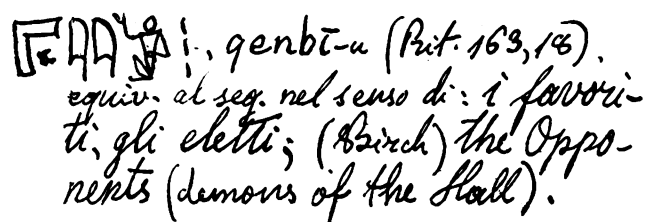 , qenbī-u (Rit. 163,18).
equiv. al seg. nel senso di: i favori-
ti, gli eletti; (Birch) the Oppo-
nents (demons of the Hall).